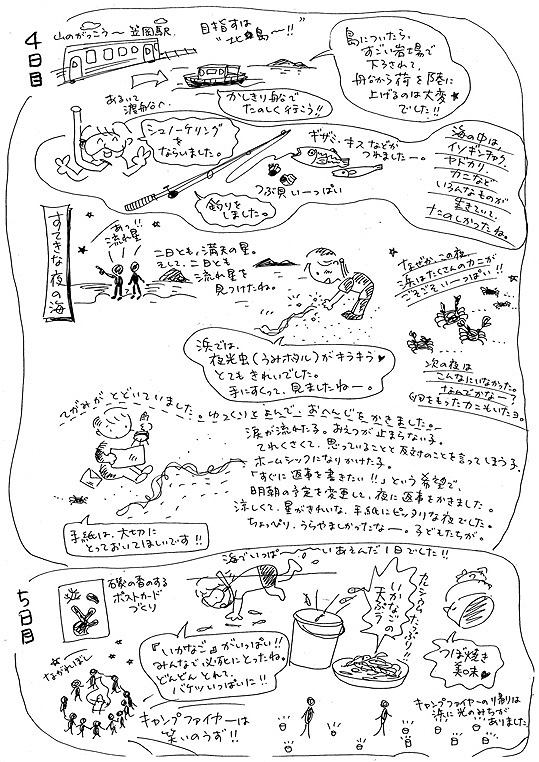 4日目
山のがっこう〜笠岡駅.
目指すは
"北木島〜!!"
あるいて
渡船へ
かしきり船で
たのしく行こう!!
島についたら、
すごい岩場で
下ろされて、
船から荷を陸に
上げるのは大変
でした!!
シュノーケリング
を
ならいました。
ギザミ、キスなどが
つれましたー。
つぶ貝いーっぱい
釣りを
しました。
海の中は、
イソギンチャク、
ヤドカリ、
カニなど
いろんなものが
生きていて、
たのしかったね。
すてきな夜の海
あっ!!
流れ星
二日とも、満天の星。
そして、二日とも
流れ星を
見つけたね。
なぜか、この夜、
浜はたくさんのカニが
ごそごそいーっぱい!!
浜では、
夜光虫(うみホタル)がキラキラ
とてもきれいでした。
手にすくって、見ましたねー。
次の夜は
こんなにいなかった。
なんでかなー?
卵をもったカニもいたヨ。
てがみがとどいていました。ゆっくりとよんで、おへんじをかきました。
涙が流れた子。おえつが止まらない子。
てれくさくて、思っていることと反対のことを言ってしまう子。
ホームシックになりかけた子。
「すぐに返事を書きたい!!」という希望で、
明朝の予定を変更して、夜に返事をかきました。
涼しくて、星がきれいな、手紙にピッタリな夜でした。
ちょっぴり、うらやましかったなー。子どもたちが。
手紙は、大切に
とっておいてほしいです!!
5日目
海でいっぱーーーいあそんだ1日でした!!
石けんの香のする
ポストカード
づくり
『いかなご』がいっぱい!!
みんなで必死にとったね。
どんどんとれて、
バケツいっぱいに!!
カルシウムたっぷり!!
いかなごの
天ぷら
つぼ焼き
美味
ながれぼし
キャンプファイヤーは
笑いのうず!!
キャンプファイヤーの帰りは
浜に光のみちが
ありました。